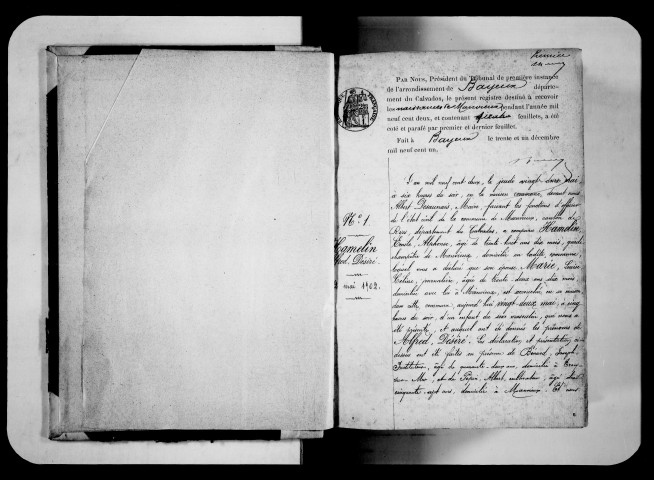 Première
PAR NOUS, Président du Tribunal de première instance
de l'arrondissement de Bayeux départe-
ment du Calvados, le présent registre destiné à recevoir
les naissances de Manvieux pendant l'année mil
neuf cent deux, et contenant feuillets, a été
coté et parafé par premier et dernier feuillet.
Fait à Bayeux le trente et un décembre
mil neuf cent un.
N° 1
Hamelin
Alfred, Désiré
mai 1902.
L'an mil neuf cent deux, le jeudi vingt deux mai,
à six heures du soir, en la maison commune, devant nous
Albert Desaunais, Maire, faisant les fonctions d'officier
de l'état civil de la commune de Manvieux, canton de
Ryes, département du Calvados, a comparu Hamelin
Emile, Alphonse, âgé de trente huit ans dix mois, garde
champêtre de Manvieux, domicilié en ladite commune,
lequel nous a déclaré que son épouse Marie, Louise
Céline, journalière, âgée de trente deux ans dix mois,
domiciliée avec lui à Manvieux, est accouchée en sa maison
dans cette commune, aujourd'hui vingt deux mai, à cinq
heures du soir, d'un enfant du sexe masculin, qui nous a
été présenté, et auquel ont été donnés les prénoms de
Alfred, Désiré. Les déclaration et présentation ci-
dessus ont été faites en présence de Joseph,
Instituteur, âgé de quarante deux ans, domicilié à Tracy-
sur-Mer, et de Albert, cultivateur, âgé de
cinquante sept ans, domicilié à Manvieux. Et nous